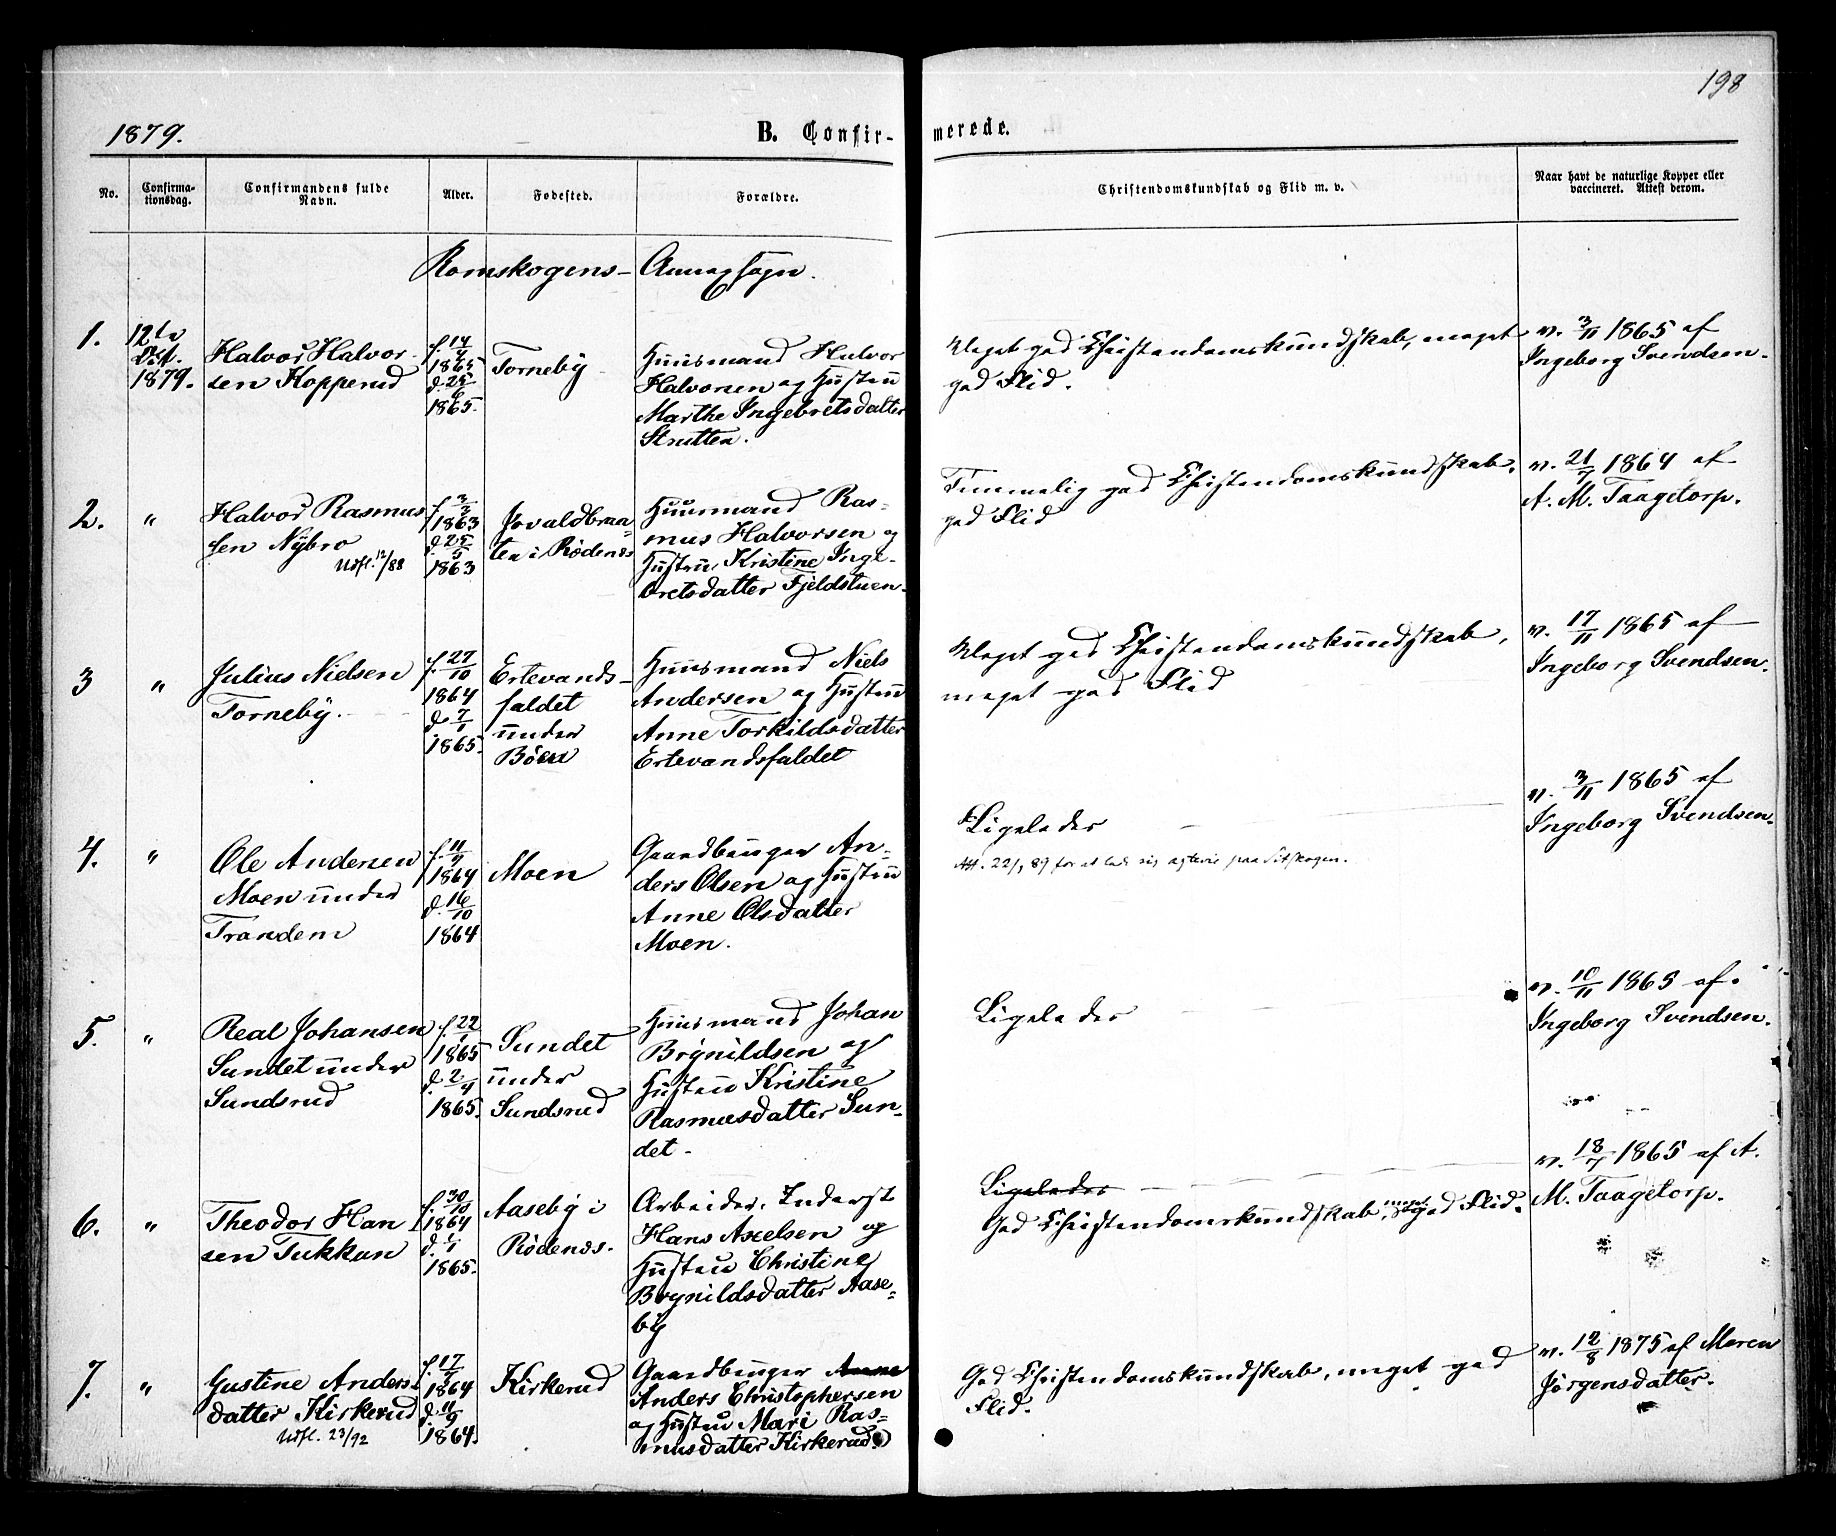 198
1879.
B. Confir- merede.
No.
Confirma-
tionsdag.
Confirmandens fulde
Navn.
Alder.
Fødested.
Forældre.
Christendomskundskab og Flid m. v.
Naar havt de naturlige Kopper eller
vaccineret. Attest derom.
Romskogens- Annexsogn.
1.
12te
Oct.
1879.
Halvor Halvor-
sen Kopperud
f. 14/4
1865
d. 25/6
1865.
Torneby
Huusmand Halvor
Halvorsen og Hustru
Marthe Ingebretsdatter
Strutten.
Meget god Christendomskundskab, meget
god Flid.
v. 3/11 1865 af
Ingeborg Svendsen.
2.
"
Halvor Rasmus
sen Nybro
Udfl. 12/88
f. 3/3
1863
d. 25/5
1863
ten i Rødenæs
Huusmand Ras-
mus Halvorsen og
Hustru Kristine Inge-
bretsdatter Fjeldstuen.
Temmelig god Christendomskundskab.
god Flid
v. 21/7 1864 af
A. M. Taagetorp.
3
"
Julius Nielsen
Torneby.
f. 27/10
1864
d. 7/1
1865.
Ertevands-
faldet
under
Böen
Huusmand Niels
Andersen og Hustru
Anne Torkildsdatter
Ertevandsfaldet
Meget god Christendomskundskab,
meget god Flid
v. 17/11 1865 af
Ingeborg Svendsen.
4.
"
Ole Andersen
Moen under
Trandem
f. 11/9
1864
d. 16/10
1864
Moen
Gaardbruger An-
ders Olsen og Hustru
Anne Olsdatter
Moen.
Ligeledes
Att. 22/1 89 for at lade sig ægtevie paa Sitskogen.
v. 3/11 1865 af
Ingeborg Svendsen.
5.
"
Real Johansen
Sundet under
Sundsrud
f. 22/1
1865
d. 2/4
1865.
Sundet
under
Sundsrud
Huusmand Johan
Brynildsen og
Hustru Kristine
Rasmusdatter Sun-
det.
Ligeledes
v. 10/11 1865 af.
Ingeborg Svendsen.
6.
"
Theodor Han
sen Tukkun
f. 30/10
1864
d. 1/1
1865.
Aaseby i
Rødenæs.
Arbeider, Inderst
Hans Axelsen og
Hustru Christine
Brynildsdatter Aase-
by
Ligeledes
God Christendomskundskab, meget god Flid.
v. 18/7 1865 af A.
M. Taagetorp.
7.
"
Gustine Anders
datter Kirkerud
Udfl. 23/92
f. 17/7
1864
d. 11/9
1864.
Kirkerud
Gaardbruger Anne
Anders Christophersen
og Hustru Mari Ras-
musdatter Kirkerud.
God Christendomskundskab, meget god
Flid.
v. 12/8 1875 af Maren
Jörgensdatter.